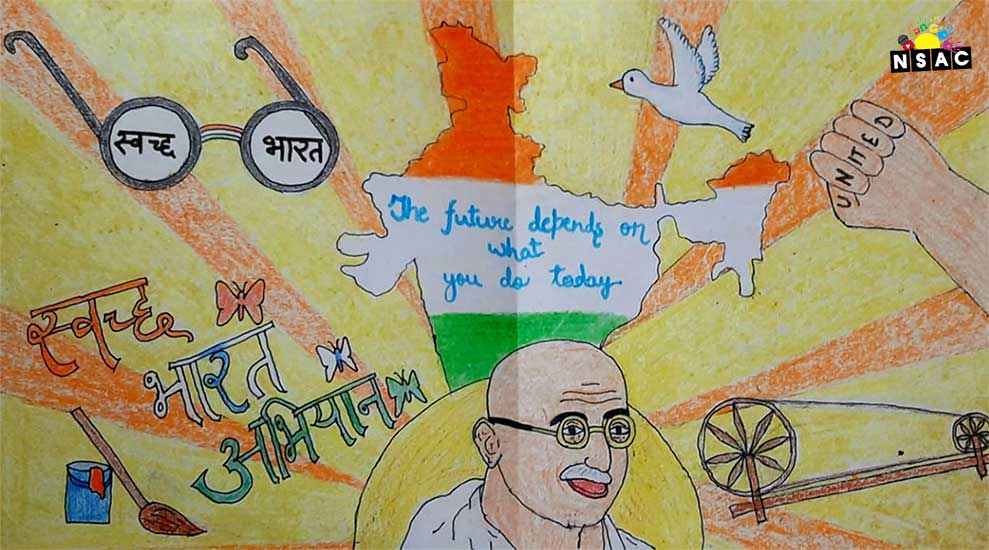 NSAC
स्वच्छ भारत
UNITED
The future depends on
what
you do today
स्वच्छ
भारत
अभियान